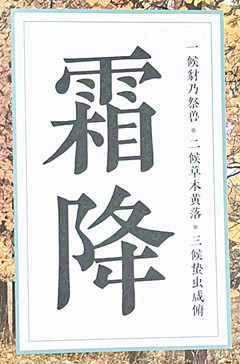 霜降
一候豺乃祭兽·二候草木黄落·三候蛰虫咸俯